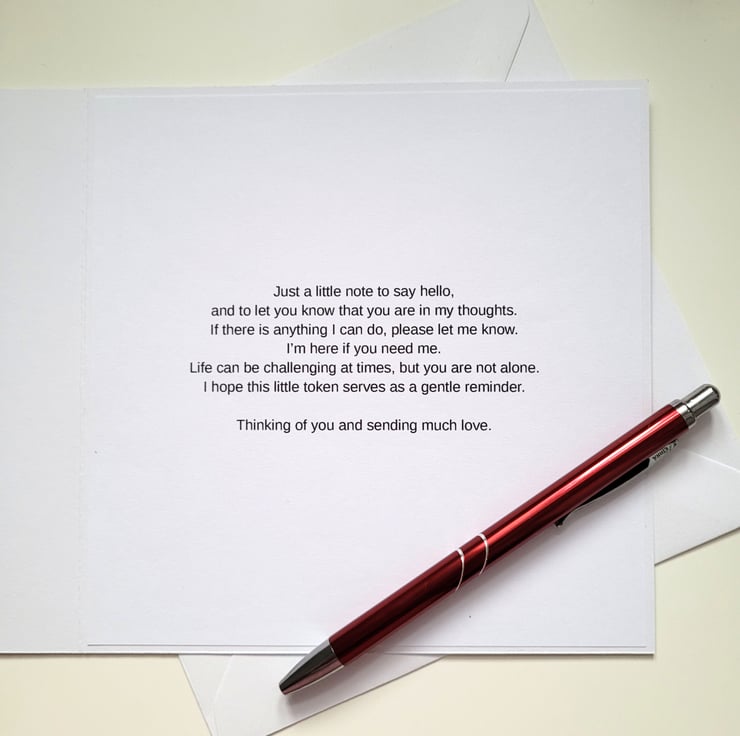 Just a little note to say hello,
and to let you know that you are in my thoughts.
If there is anything I can do, please let me know.
I’m here if you need me.
Life can be challenging at times, but you are not alone.
I hope this little token serves as a gentle reminder.
Thinking of you and sending much love.